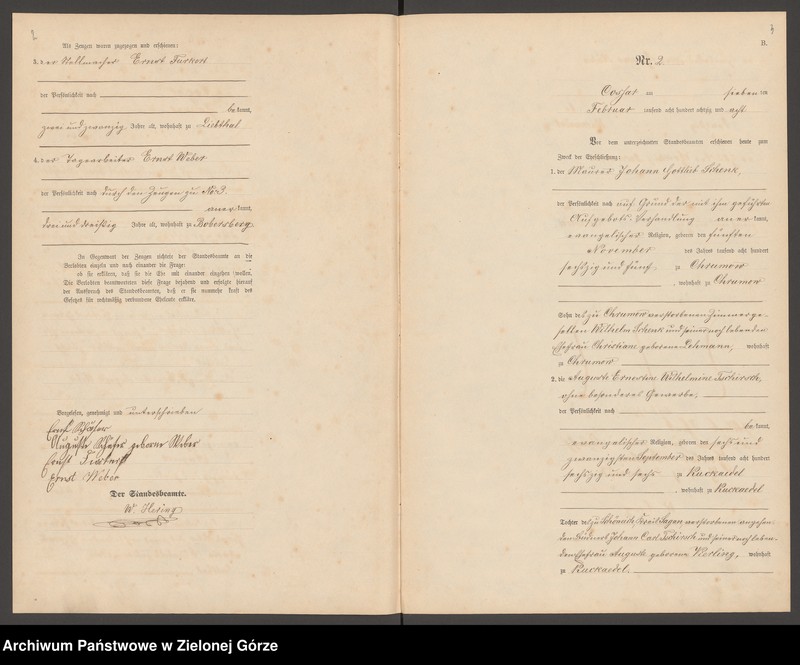 2
Als Zeugen waren zugezogen und erschienen:
3. der Stellmacher Ernst
der Persönlichkeit nach
bekannt,
zwei und zwanzig Jahre alt, wohnhaft zu Liebthal
4. der Tagearbeiter Ernst Weber
der Persönlichkeit nach durch den Zeugen zu No 3.
anerkannt,
drei und dreißig Jahre alt, wohnhaft zu Bobersberg.
In Gegenwart der Zeugen richtete der Standesbeamte an die
Verlobten einzeln und nach einander die Frage:
ob sie erklären, daß sie die Ehe mit einander eingehen wollen.
Die Verlobten beantworteten diese Frage bejahend und erfolgte hierauf
der Ausspruch des Standesbeamten, daß er sie nunmehr kraft des
Gesetzes für rechtmäßig verbundene Eheleute erkläre.
Vorgelesen, genehmigt und unterschrieben
Ernst Schäfer
Auguste Schäfer geborne Weber
Ernst
Ernst Weber
Der Standesbeamte.
W. Hering
B.
Nr. 2
Cossar am sieben ten
Februar tausend acht hundert achtzig und acht
Vor dem unterzeichneten Standesbeamten erschienen heute zum
Zweck der Eheschließung:
1. der Maurer Johann Gottlieb Schenk,
der Persönlichkeit nach auf Grund der mit ihm geführten
Aufgebots-Verhandlung anerkannt,
evangelischer Religion, geboren den fünften
November des Jahres tausend acht hundert
sechszig und fünf zu Chrumow
, wohnhaft zu Chrumow
Sohn des zu Chrumow verstorbenen Zimmerge-
sellen Wilhelm Schenk und seiner noch lebenden
Ehefrau Christiane geborene Lehmann, wohnhaft
zu Chrumow
2. die Auguste Ernestine Wilhelmine Tschirsch,
ohne besonderes Gewerbe,
der Persönlichkeit nach
bekannt,
evangelischer Religion, geboren den sechs und
zwanzigsten September des Jahres tausend acht hundert
sechszig und sechs zu Kuckaedel
, wohnhaft zu Kuckaedel
Tochter des zu Schönaich, Kreis Sagan, verstorbenen
Büdners Johann Carl Tschirsch und seiner noch leben-
den Ehefrau Auguste geborene wohnhaft
zu Kuckaedel.
Archiwum Państwowe w Zielonej Górze